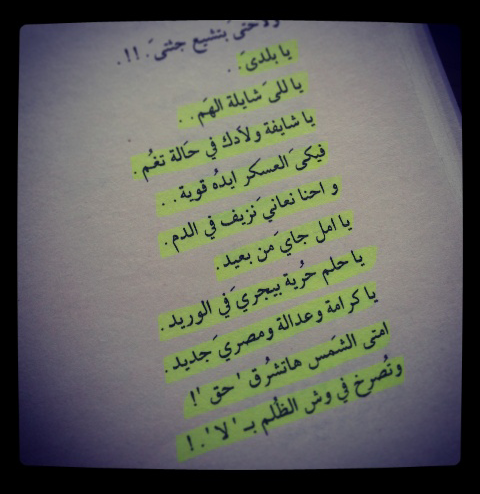 ولاحتى بنشيع جثتي.!!.
يا بلدى . .
يا للى شايلة الهم . .
يا شايفة ولادك في حالة تغُم .
فيكى العسكر ايدُه قوية . .
و احنا نعاني نزيف في الدم .
يا امل جاي من بعيد .
يا حلم حُرية بيجري في الوريد .
يا كرامة وعدالة ومصري جديد .
امتى الشمس هاتشرُق ' حق '!
وتُصرخ في وش الظُلم بـ ' لا ' . !